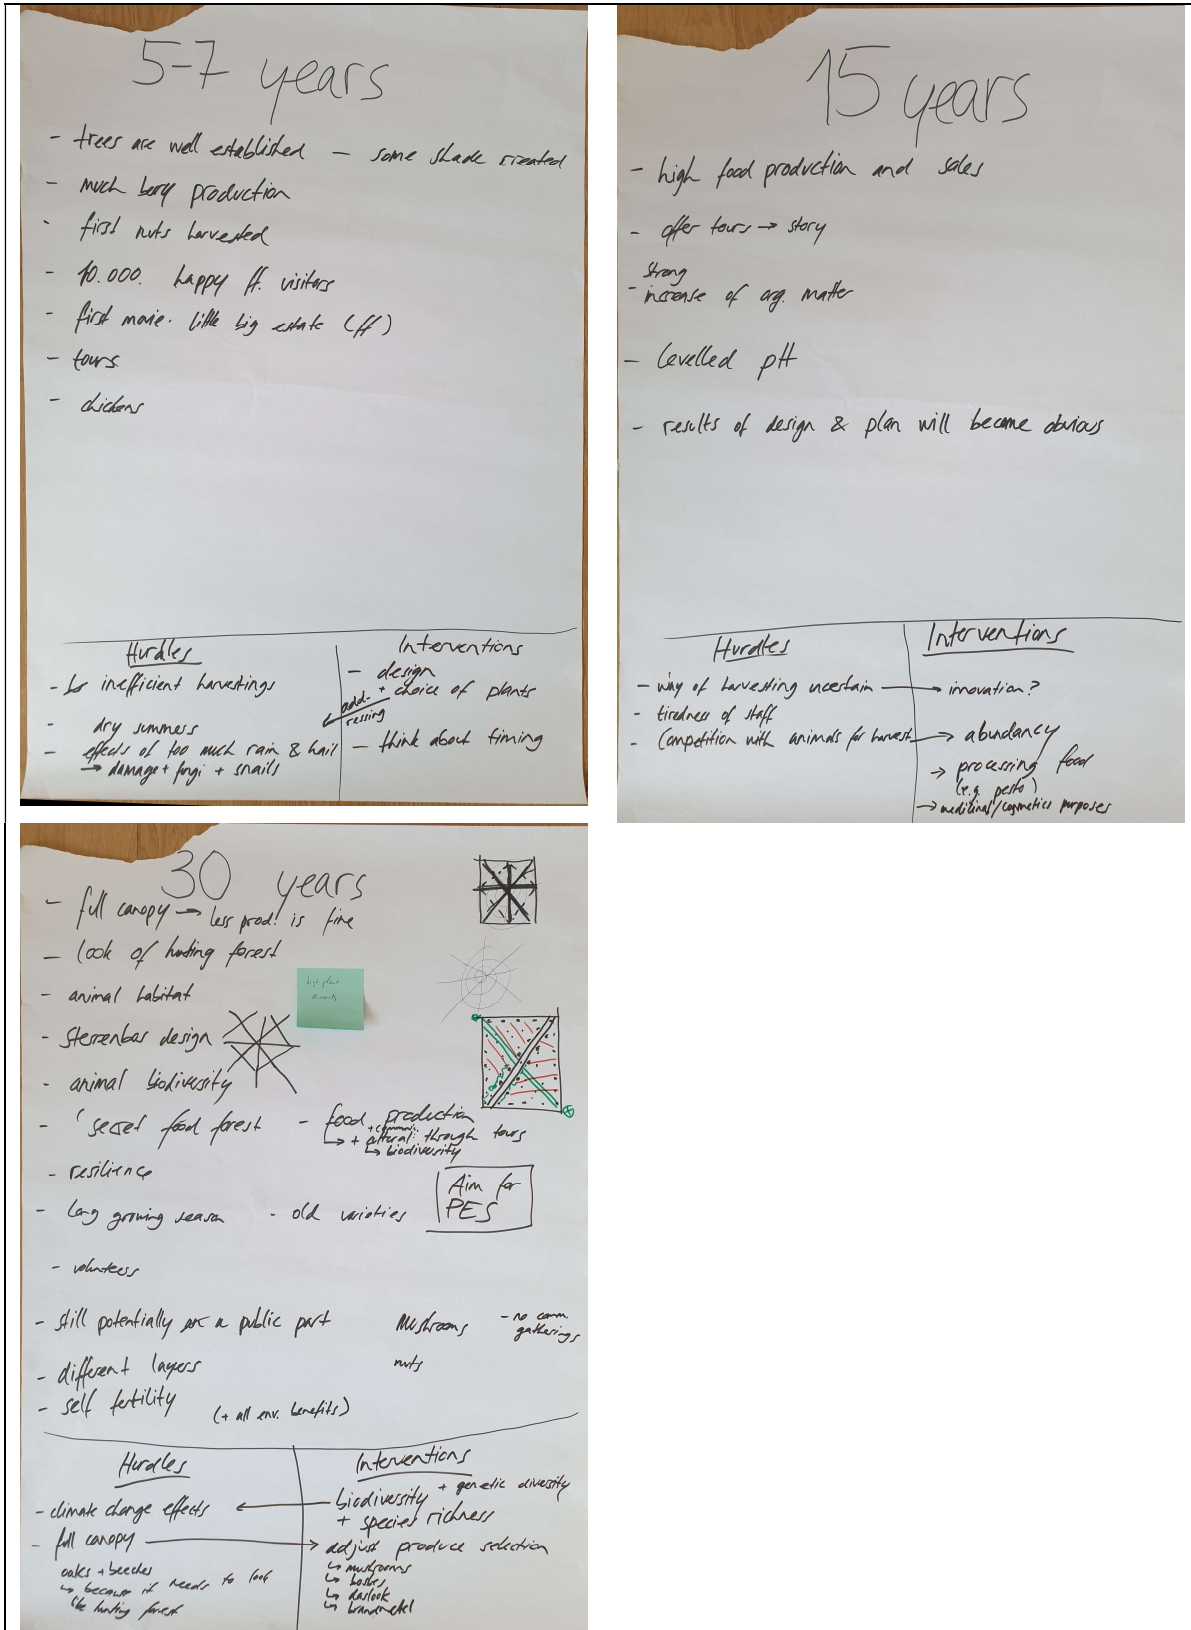 5-7 years
- trees are well established - some shade created
- much bery production
- first nuts harvested
- 10.000. happy ff. visitors
- first movie. little big estate (ff)
- tours
- chickens
Hurdles
- inefficient harvestings
- dry summers
- effects of too much rain & hail
→ damage + fungi + snails
Interventions
- design
+ choice of plants
add-
ressing
- think about timing
15 years
- high food production and sales
- offer tours → story
strong
- increase of org. matter
- levelled pH
- results of design & plan will become obvious
Hurdles
- way of harvesting uncertain
- tiredness of staff
- Competition with animals for harvest
Interventions
→ innovation?
→ abundancy
→ processing food
(e.g. pesto)
→ medicinal/cosmetics purposes
30 years
- full canopy → less prod. is fine
- look of hunting forest
high plant
diversity
- animal habitat
- sterrenbos design
- animal biodiversity
- 'secret food forest
- food production
+ comm.
↳ + cultural through tours
↳ biodiversity
- resilience
Aim for
PES
- long growing season - old varieties
- volunteers
- still potentially a public part
mushrooms
- no comm.
gatherings
nuts
- different layers
- self fertility
(+ all env. benefits)
Hurdles
- climate change effects
- full canopy
oaks + beeches
↳ because it needs to look
like hunting forest
Interventions
- biodiversity + genetic diversity
+ species richness
→ adjust produce selection
↳ mushrooms
↳ bosbes
↳ daslook
↳ brandnetel